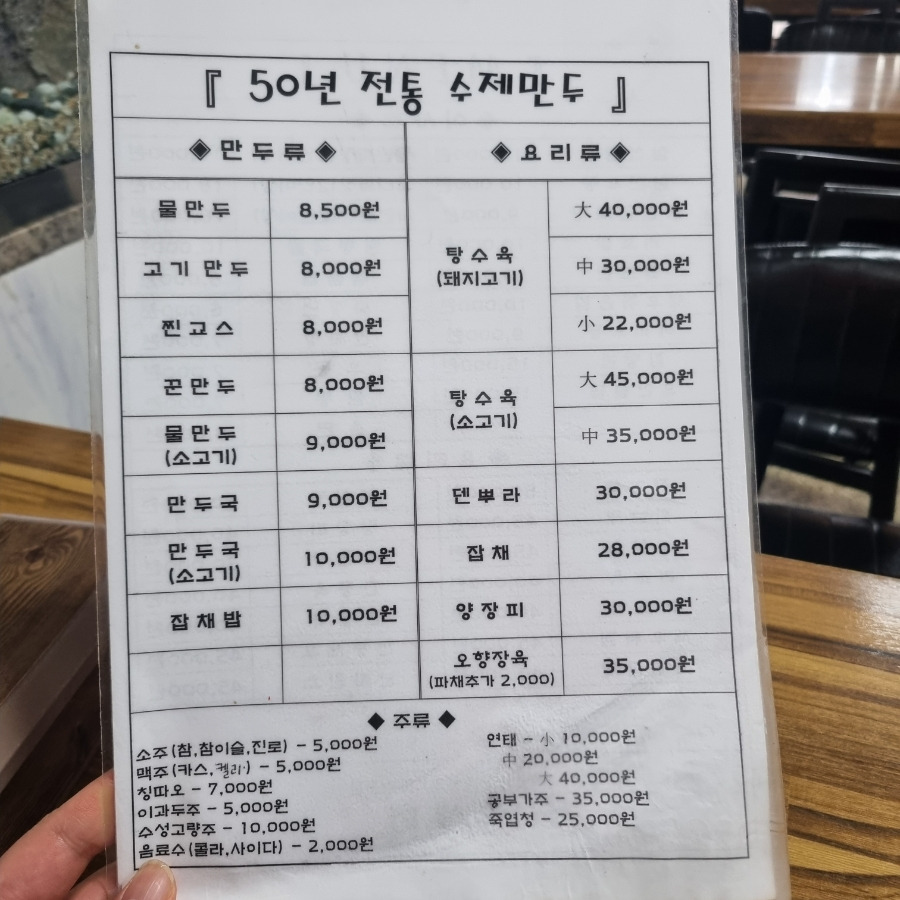 『 50년 전통 수제만두 』
◈ 만 두 류 ◈
물 만 두 8,500원
고 기 만 두 8,000원
찐 교 스 8,000원
꾼 만 두 8,000원
물 만 두
(소고기) 9,000원
만 두 국 9,000원
만 두 국
(소고기) 10,000원
잡 채 밥 10,000원
◈ 요 리 류 ◈
탕 수 육
(돼지고기)
大 40,000원
中 30,000원
小 22,000원
탕 수 육
(소고기)
大 45,000원
中 35,000원
덴 뿌 라 30,000원
잡 채 28,000원
양 장 피 30,000원
오향장육
(파채추가 2,000) 35,000원
◆ 주류 ◆
소주(참,참이슬,진로) - 5,000원
맥주(카스,켈리) - 5,000원
칭따오 - 7,000원
이과두주 - 5,000원
수성고량주 - 10,000원
음료수(콜라,사이다) - 2,000원
연태 - 小 10,000원
中 20,000원
大 40,000원
공부가주 - 35,000원
죽엽청 - 25,000원